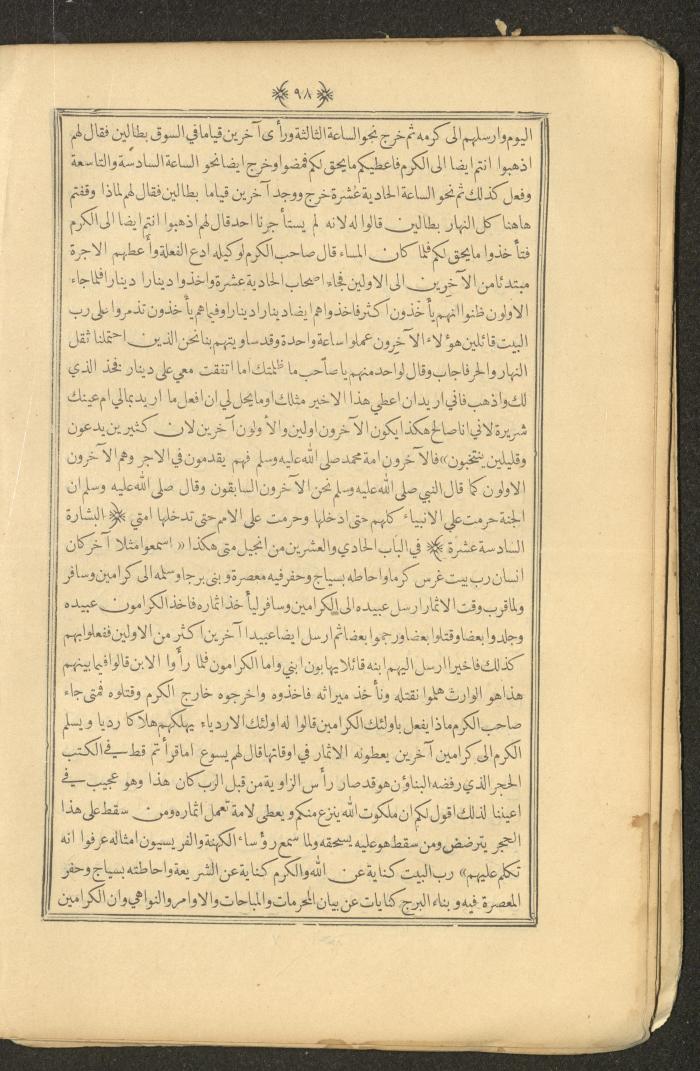 ٩٨
اليوم وارسلهم الى كرمه ثم خرج نحو الساعة الثالثة ورأى آخرين قياما في السوق بطالين فقال لهم
اذهبوا انتم ايضا الى الكرم فاعطيكم ما يحق لكم فمضوا وخرج ايضا نحو الساعة السادسة والتاسعة
وفعل كذلك ثم نحو الساعة الحادية عشرة خرج ووجد آخرين قياما بطالين فقال لهم لماذا وقفتم
هاهنا كل النهار بطالين قالوا له لانه لم يستأجرنا احد قال لهم اذهبوا انتم ايضا الى الكرم
فتأخذوا ما يحق لكم فلما كان المساء قال صاحب الكرم لوكيله ادع الفعلة وأعطهم الاجرة
مبتدئا من الآخرين الى الاولين فجاء اصحاب الحادية عشرة واخذوا دينارا دينارا فلما جاء
الاولون ظنوا انهم يأخذون اكثر فاخذوا هم ايضا دينارا دينارا وفيما هم يأخذون تذمروا على رب
البيت قائلين هؤلاء الآخرون عملوا ساعة واحدة وقد ساويتهم بنا نحن الذين احتملنا ثقل
النهار والحر فاجاب وقال لواحد منهم يا صاحب ما ظلمتك اما اتفقت معي على دينار فخذ الذي
لك واذهب فاني اريد ان اعطي هذا الاخير مثلك اوما يحل لي ان افعل ما اريد بمالي ام عينك
شريرة لاني انا صالح هكذا يكون الآخرون اولين والأولون آخرين لان كثيرين يدعون
وقليلين ينتخبون» فالآخرون امة محمد صلى الله عليه وسلم فهم يقدمون في الاجر وهم الآخرون
الاولون كما قال النبي صلى الله عليه وسلم نحن الآخرون السابقون وقال صلى الله عليه وسلم ان
الجنة حرمت على الانبياء كلهم حتى ادخلها وحرمت على الامم حتى تدخلها امتي ﴿ البشارة
السادسة عشرة ﴾ في الباب الحادي والعشرين من انجيل متى هكذا « اسمعوا مثلا آخر كان
انسان رب بيت غرس كرما واحاطه بسياج وحفر فيه معصرة وبنى برجا وسلمه الى كرامين وسافر
ولما قرب وقت الاثمار ارسل عبيده الى الكرامين وسافر ليأخذ اثماره فاخذ الكرامون عبيده
وجلدوا بعضا وقتلوا بعضا ورجموا بعضا ثم ارسل ايضا عبيدا آخرين اكثر من الاولين ففعلوا بهم
كذلك فاخيرا ارسل اليهم ابنه قائلا يهابون ابني واما الكرامون فلما رأوا الابن قالوا فيما بينهم
هذا هو الوارث هلموا نقتله ونأخذ ميراثه فاخذوه واخرجوه خارج الكرم وقتلوه فمتى جاء
صاحب الكرم ماذا يفعل باولئك الكرامين قالوا له اولئك الاردياء يهلكهم هلاكا رديا ويسلم
الكرم الى كرامين آخرين يعطونه الاثمار في اوقاتها قال لهم يسوع اما قرأتم قط في الكتب
الحجر الذي رفضه البناؤن هو قد صار رأس الزاوية من قبل الرب كان هذا وهو عجيب في
اعيننا لذلك اقول لكم ان ملكوت الله ينزع منكم ويعطى لامة تعمل اثماره ومن سقط على هذا
الحجر يترضض ومن سقط هو عليه يسحقه ولما سمع رؤساء الكهنة والفريسيون امثاله عرفوا انه
تكلم عليهم» رب البيت كناية عن الله والكرم كناية عن الشريعة واحاطته بسياج وحفر
المعصرة فيه وبناء البرج كنايات عن بيان المحرمات والمباحات والاوامر والنواهي وان الكرامين